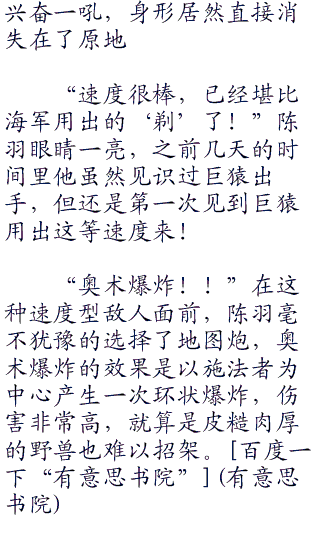 兴奋一吼，身形居然直接消
失在了原地
“速度很棒，已经堪比
海军用出的‘剃’了！”陈
羽眼睛一亮，之前几天的时
间里他虽然见识过巨猿出
手，但还是第一次见到巨猿
用出这等速度来！
“奥术爆炸！！”在这
种速度型敌人面前，陈羽毫
不犹豫的选择了地图炮，奥
术爆炸的效果是以施法者为
中心产生一次环状爆炸，伤
害非常高，就算是皮糙肉厚
的野兽也难以招架。[百度一
下“有意思书院”](有意思
书院)